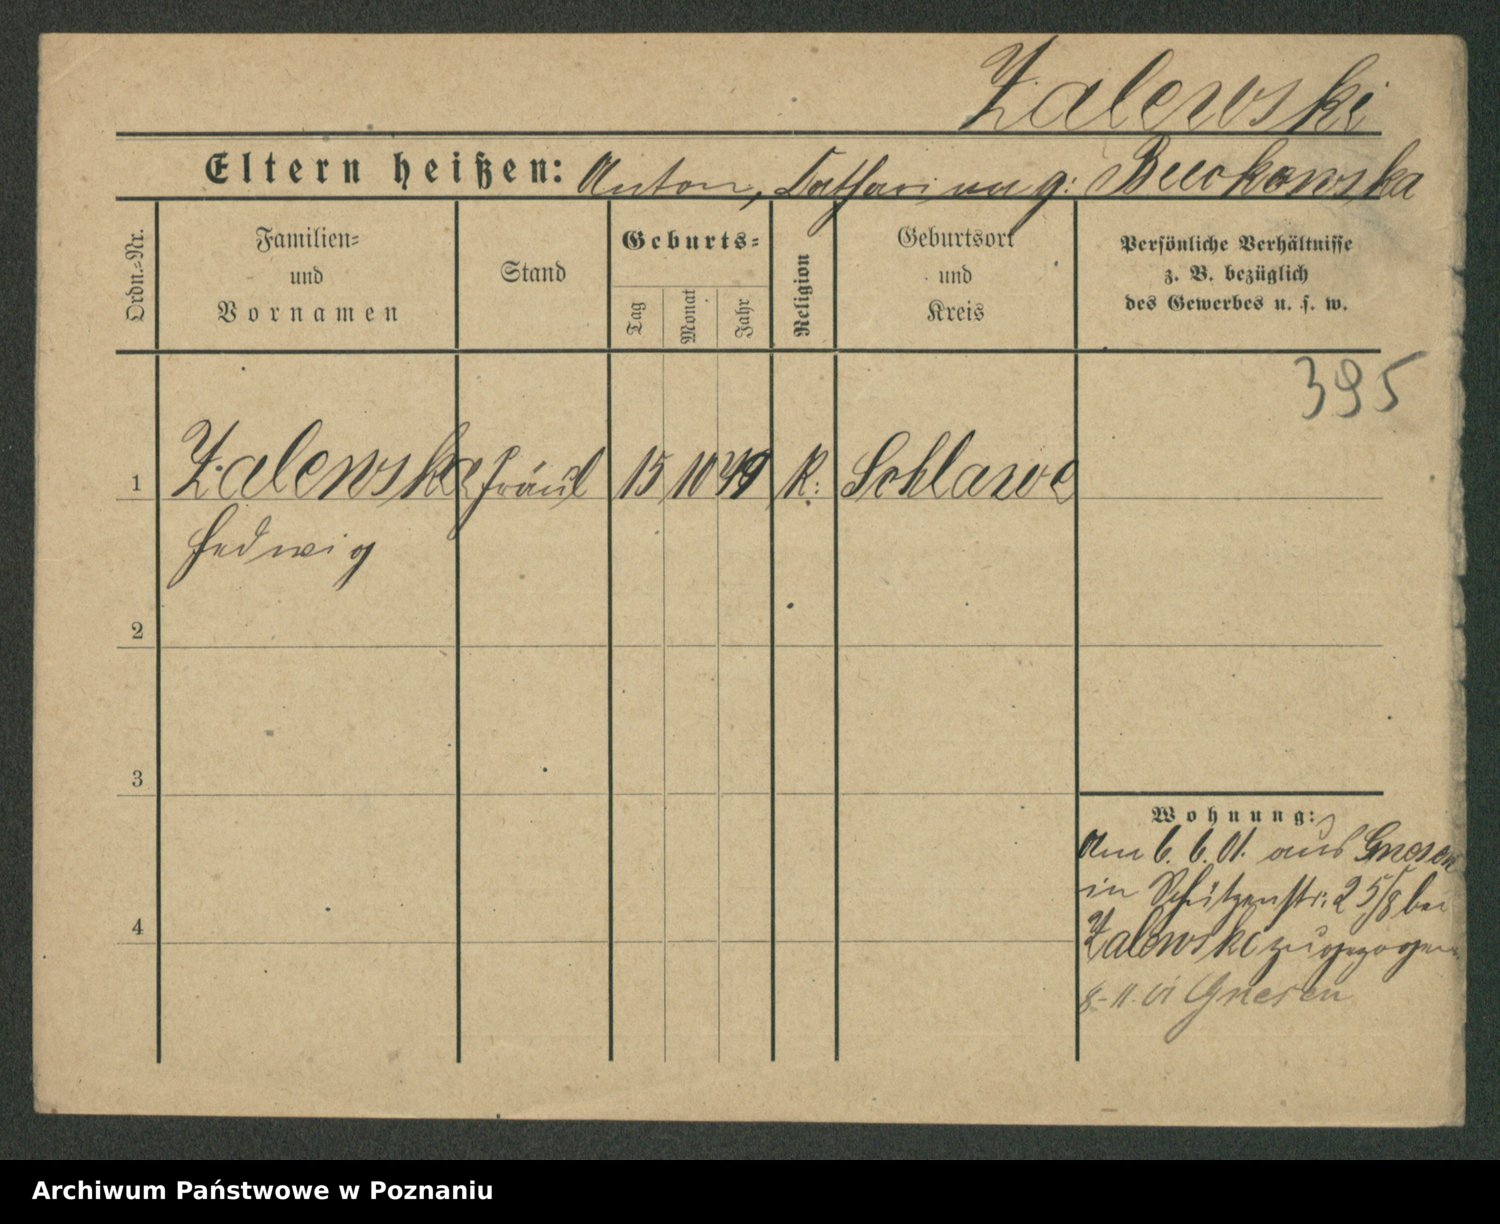 Zalewski
Eltern heißen: Anton, Catharina g:
Ordn.=Nr.
Familien=
und
Vornamen
Stand
Geburts=
Tag
Monat
Jahr
Religion
Geburtsort
und
Kreis
Persönliche Verhältnisse
z. B. bezüglich
des Gewerbes u. s. w.
395
1 Zalewska Fräul 15 10 49 K: Schlawe
Hedwig
2
3
4
Wohnung:
Am 6. 6. 01. aus Gnesen
in Schützenstr. 25/8 bei
Zalewski zugezogen
8-11-01 Gnesen
Archiwum Państwowe w Poznaniu